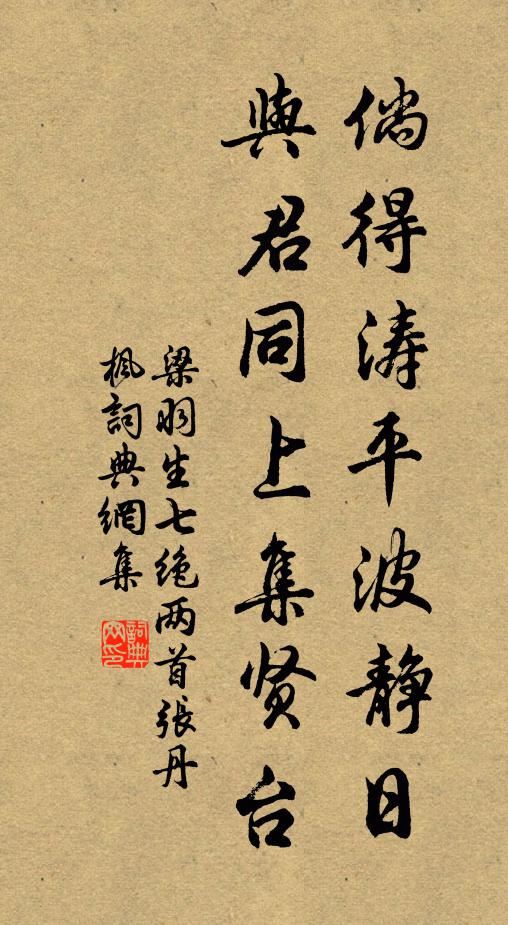 倘得涛平波静日
與君同上集贤台
梁羽生七绝两首張丹
楓詞典網集
詞典网印